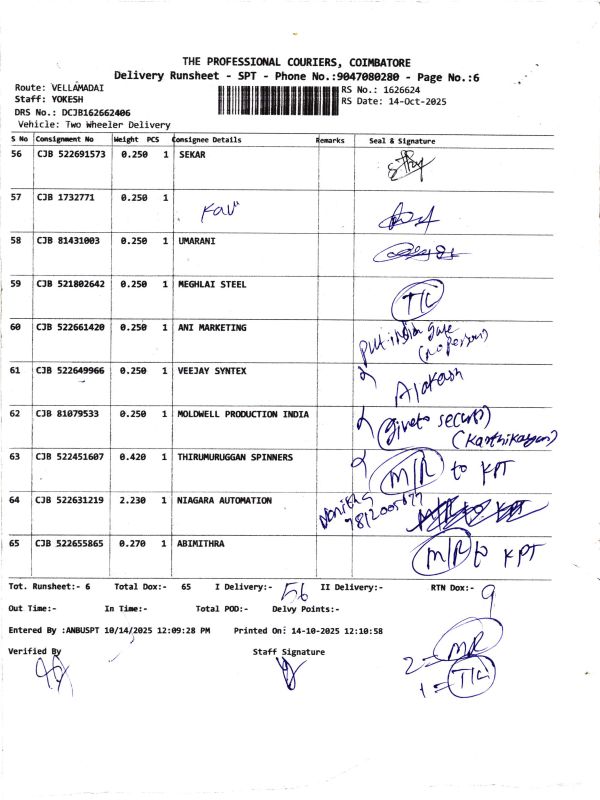 THE PROFESSIONAL COURIERS, COIMBATORE
Delivery Runsheet - SPT - Phone No.:9047080280 - Page No.:6
Route: VELLAMADAI
RS No.: 1626624
Staff: YOKESH
RS Date: 14-Oct-2025
DRS No.: DCJB162662406
Vehicle: Two Wheeler Delivery
S No Consignment No Weight PCS Consignee Details Remarks Seal & Signature
56 CJB 522691573 0.250 1 SEKAR
57 CJB 1732771 0.250 1
58 CJB 81431003 0.250 1 UMARANI
59 CJB 521802642 0.250 1 MEGHLAI STEEL T/C
60 CJB 522661420 0.250 1 ANI MARKETING put inside gate
(no person)
61 CJB 522649966 0.250 1 VEEJAY SYNTEX
62 CJB 81079533 0.250 1 MOLDWELL PRODUCTION INDIA
63 CJB 522451607 0.420 1 THIRUMURUGGAN SPINNERS M/R to KPT
64 CJB 522631219 2.230 1 NIAGARA AUTOMATION
65 CJB 522655865 0.270 1 ABIMITHRA M/R to KPT
Tot. Runsheet:- 6 Total Dox:- 65 I Delivery:- 56 II Delivery:- RTN Dox:- 9
Out Time:- In Time:- Total POD:- Delvy Points:-
Entered By :ANBUSPT 10/14/2025 12:09:28 PM Printed On: 14-10-2025 12:10:58
Verified By Staff Signature
2 = M/R
1 = T/C